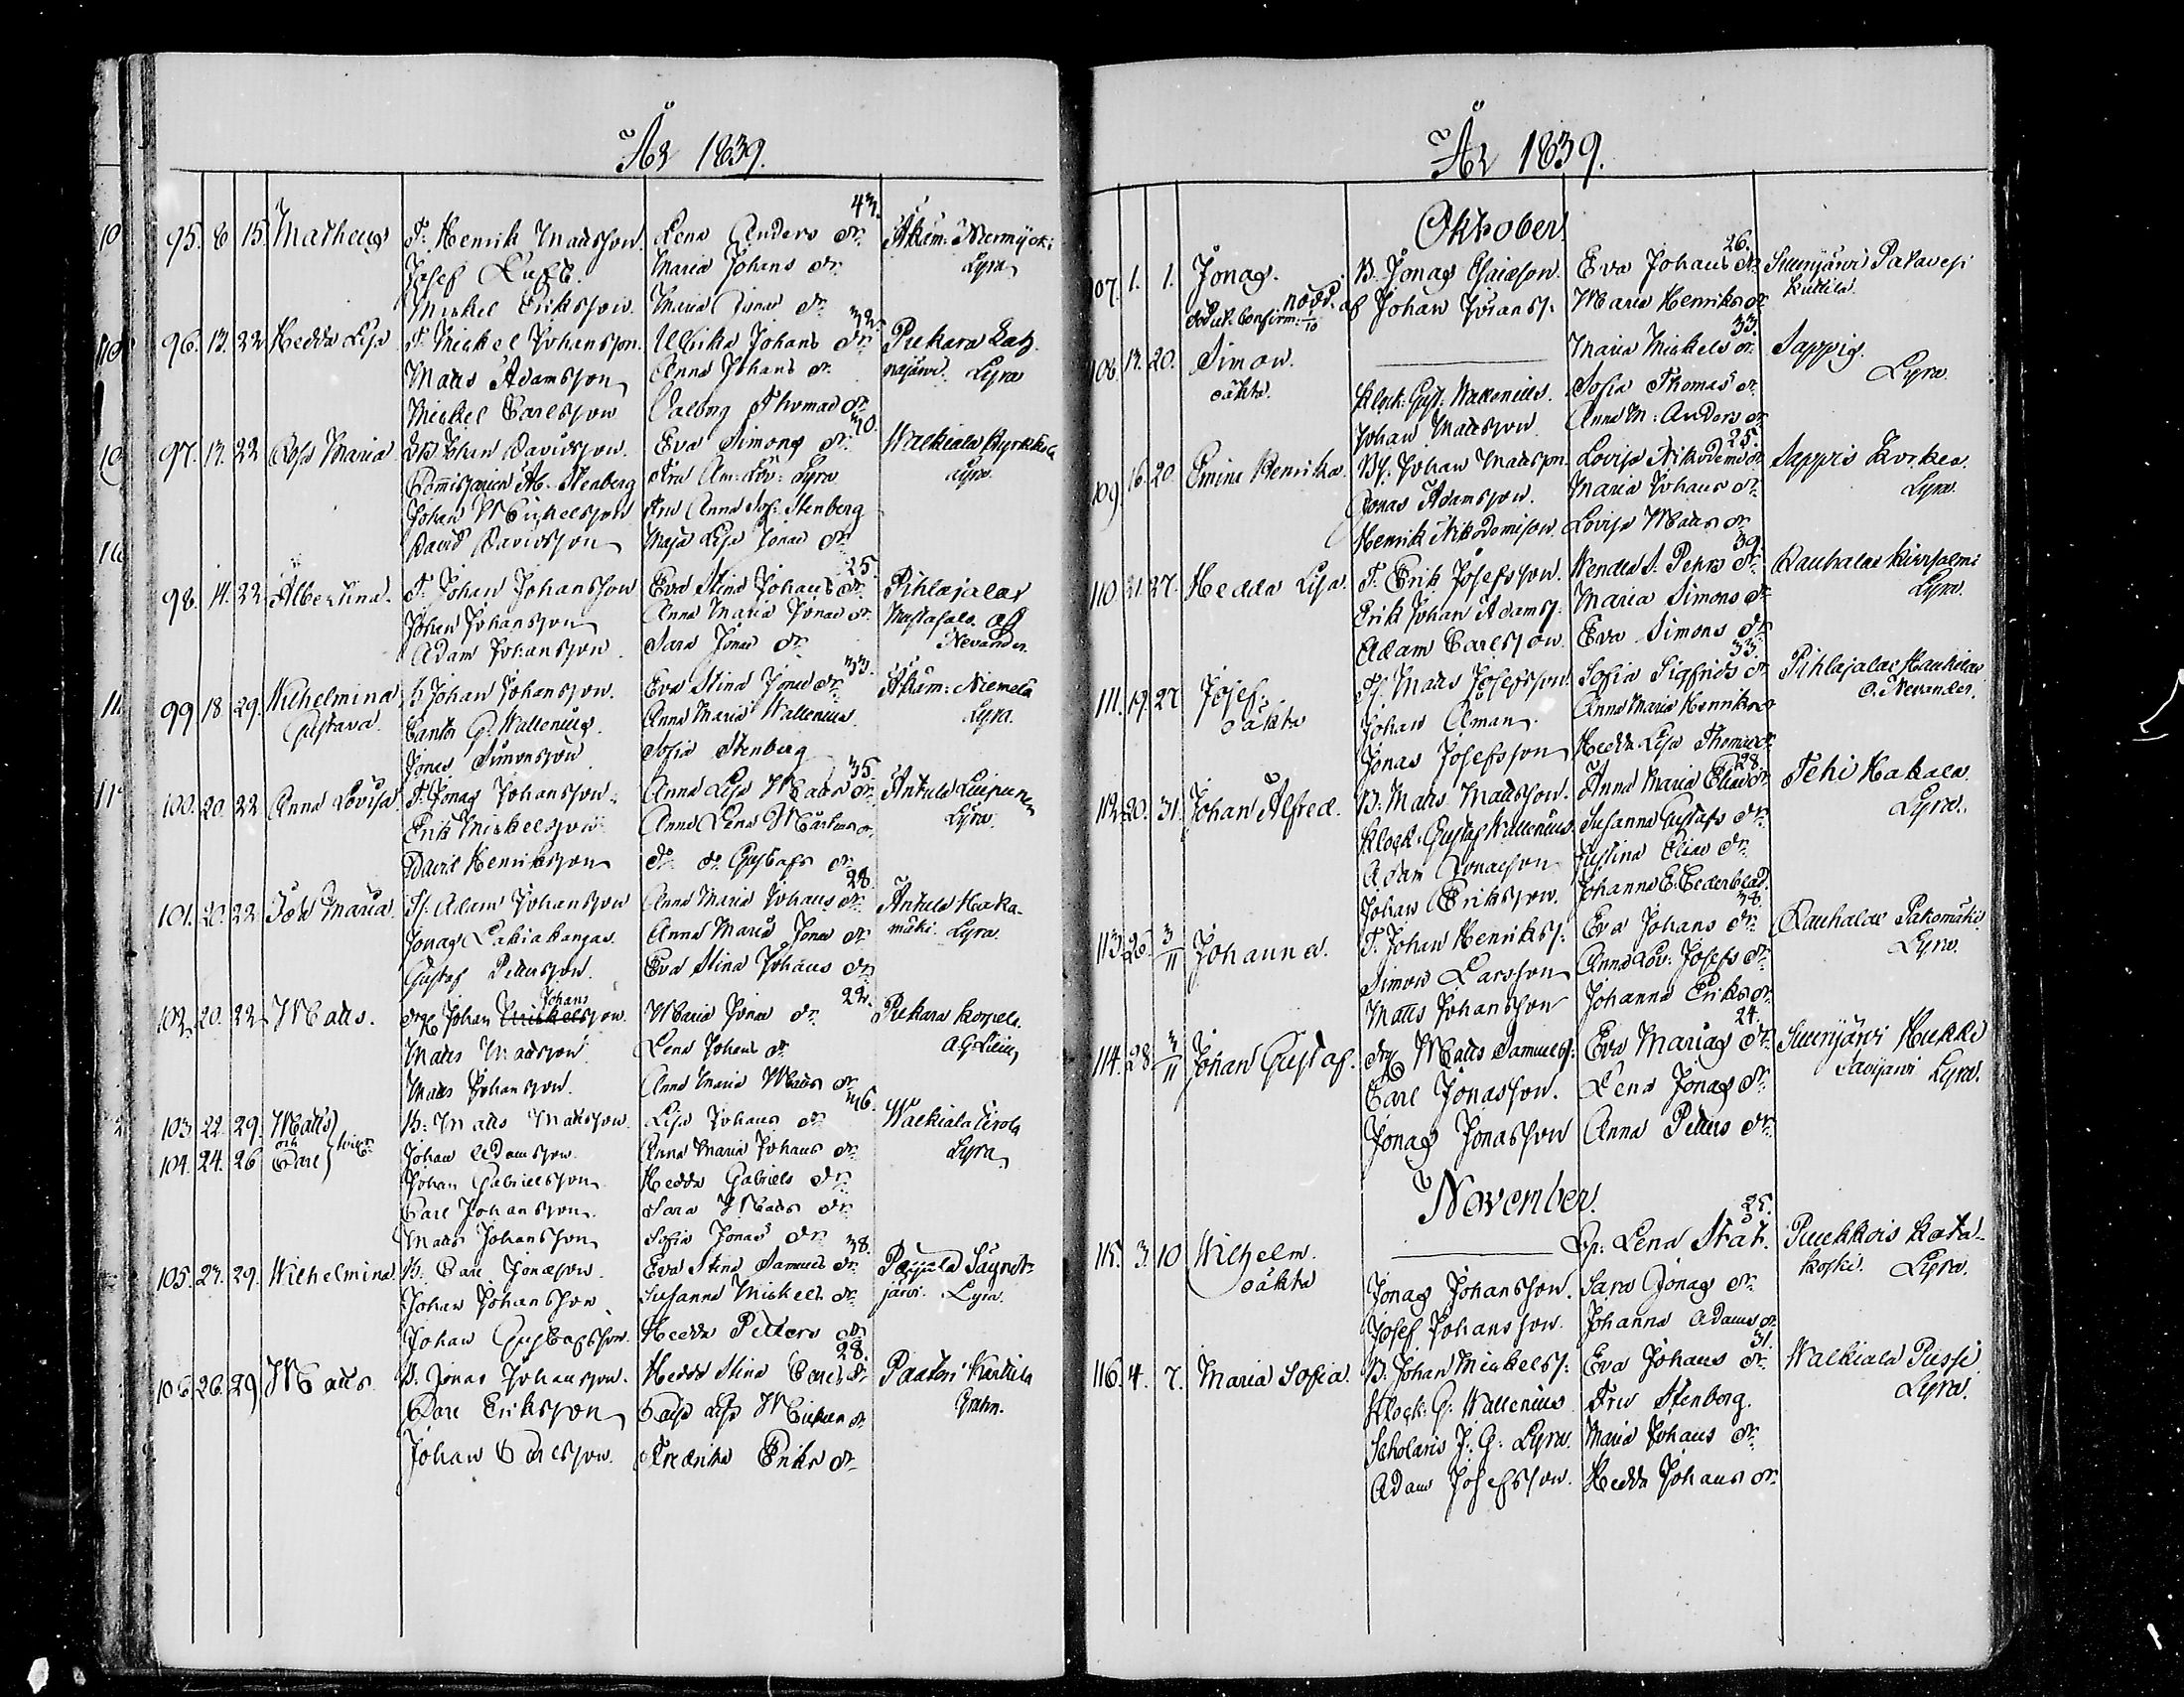 År 1839.
43.
95. 8 15. Matheus T: Henrik Mattsson. Lena Anders dr. Åkäm: Niemijoki
Josef Maria Johans dr. Lyra
Mickel Eriksson. Maria Jonas dr.
32.
96. 13. 22 Hedda Lisa T. Mickel Johansson. Ullrika Johans dr. Pukara
Matts Adamsson Anna Johans dr. najärvi. Lyra
Mickel Carlsson Valborg Thomas dr.
30.
97. 17. 22 Maria Johan Davidsson. Eva Simons dr. Walkiala Kyrkkola
Commissarien Ab. Stenberg Fru Am: Lov: Lyra Lyra.
Johan Mickelsson Fru Anna Sof: Stenberg
David Davidsson Maja Lisa Jonas dr.
25.
98. 14. 22 Albertina. T. Johan Johansson Eva Stina Johans dr. Pihlajalax
Johan Johansson Anna Maria Jonas dr. af
Adam Johansson Sara Jonas dr. Nevander.
33.
99 18 29. Wilhelmina B. Johan Johansson. Eva Stina Jonas dr. Åkäm: Niemelä
Gustava. Cantor G. Wallenius. Anna Maria Wallenius. Lyra.
Jonas Simonsson Sofia Stenberg
35.
100. 20. 22 Anna Lovisa T. Jonas Johansson. Anna Lisa Matts dr. Antula
Erik Mickelsson Anna Lena dr. Lyra.
David Henriksson do do Gustafs dr.
28.
101. 20. 22 Maria Adam Johansson Anna Maria Johans dr. Antula Haka-
Jonas Lakiakangas. Anna Maria Jonas dr. mäki. Lyra.
Gustaf Pettersson. Eva Stina Johans dr.
22.
102. 20. 22 Matts. Drg Johan Johans Mickelsson. Maria Jonas dr. Pukara Korpela
Matts Mattsson Lena Johans dr.
Matts Johansson. Anna Maria Matts dr.
36.
103 22. 29. Matts B: Matts Mattsson. Lisa Johans dr. Walkiala
104. 24. 26 och Carl Johan Adamsson. Anna Maria Johans dr. Lyra
Johan Gabrielsson Hedda Gabriels dr.
Carl Johansson. Sara Matts dr.
Matts Johansson Sofia Jonas dr.
38.
105. 27. 29. Wilhelmina B. Carl Jonasson. Eva Stina Samuels dr.
Johan Johansson Susanna Mickels dr. järvi. Lyra.
Johan Gustafsson. Hedda Petters dr.
28.
106. 26. 29 Matts B. Jonas Johansson. Hedda Stina Carls dr. Paatos Karttila
Carl Eriksson Caisa Lisa Mickels dr Grahn.
Johan Carlsson. Fredrika Eriks dr
År 1839.
Oktober.
26.
107. 1. 1. Jonas. B. Jonas Esaiasson. Eva Johans dr. Suonjärvi Patavesi
Johan Johanss: Maria Henriks dr Kuttila.
33.
108. 17. 20. Simon. Maria Mickels dr. Sappis.
oäkta. Klock: Gust: Wallenius. Sofia Thomas dr. Lyra.
Johan Mattsson Anna M: Anders dr
25.
109 16. 20. Emma Henrika. Johan Mattsson. Lovisa Nikodemi dr Sappis Korkea.
Jonas Adamsson. Maria Johans dr. Lyra.
Henrik Nikodemison. Lovisa Matts dr.
39.
110. 21. 27. Hedda Lisa. T. Erik Josefsson. Wendla S. Pehrs dr. Rauhalax
Erik Johan Adams: Maria Simons dr. Lyra.
Adam Carlsson. Eva Simons dr.
33.
111. 19. 27 Josef. Matts Josefsson. Sofia Sigfrids dr. Pihlajalax Haukilax
oäkta Johan Aman. Anna Maria Henriks dr C. Nevander.
Jonas Josefsson Hedda Lisa Thomas dr.
28.
112. 20. 31. Johan Alfred. B. Matts Mattsson. Anna Maria Elias dr. Tehi Hakala
Klock: Gustaf Wallenius. Susanna Gustafs dr. Lyra.
Adam Jonasson Justina Elias dr.
Johan Eriksson. Johanna E. Cederblad.
38.
113. 26. 3/11 Johanna. T. Johan Henriks: Eva Johans dr. Rauhalax Pakomäki
Simon Larsson Anna Lov: Josefs dr. Lyra.
Matts Johansson Johanna Eriks dr.
24.
114. 28. 3/11 Johan Gustaf. Drg Matts Samuels: Eva Marias dr. Suonjärvi Hukka
Carl Jonasson. Lena Jonas dr. Lyra.
Jonas Jonasson Anna Petters dr.
November.
25.
115. 3. 10 Wilhelm. Lena Ståt. Puukkois Kata-
oäkta Jonas Johansson. Sara Jonas dr. koski. Lyra.
Josef Johansson. Johanna Adams dr.
31.
116. 4. 7. Maria Sofia. B. Johan Mickels: Eva Johans dr. Walkiala Pussi
Klock: G: Wallenius Fru Stenberg. Lyra.
Scholaris J: G: Lyra. Maria Johans dr.
Adam Josefsson. Hedda Johans dr.